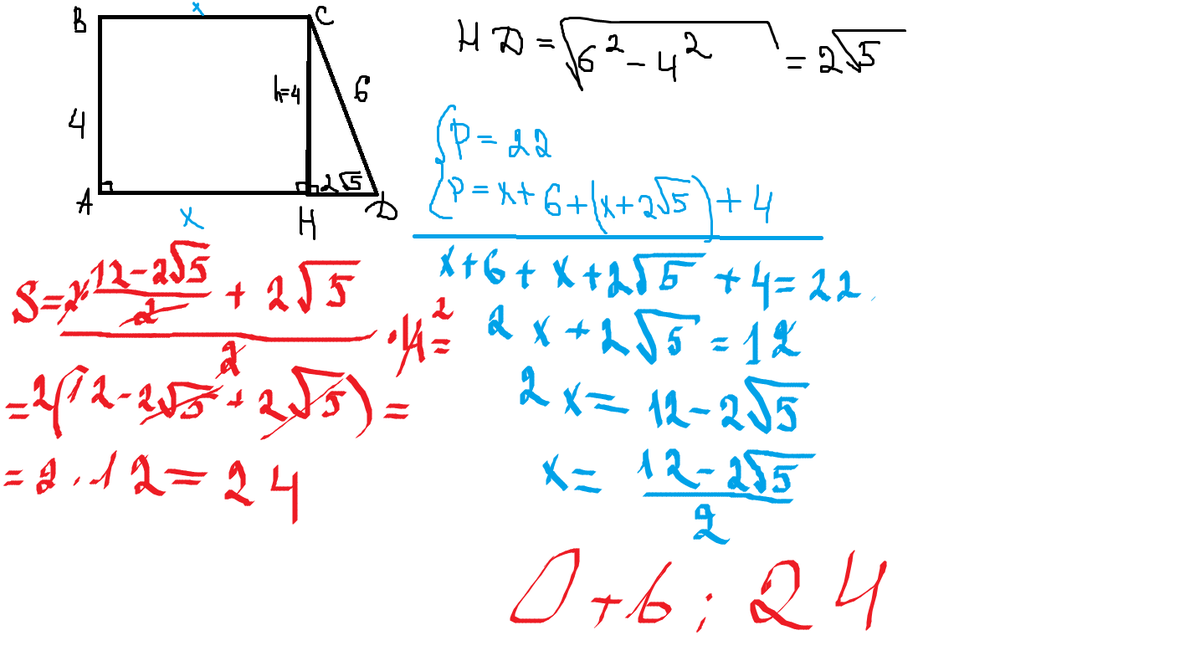 x
B C
4 h=4 6
2√5
A x H D
HD = √6² - 4² = 2√5
{ P = 22
{ P = x + 6 + (x + 2√5) + 4
x + 6 + x + 2√5 + 4 = 22
2x + 2√5 = 12
2x = 12 - 2√5
x = (12 - 2√5)/2
S = (2·(12 - 2√5)/2 + 2√5)/2 · 4² =
= 2(12 - 2√5 + 2√5) =
= 2 · 12 = 24
Отв: 24